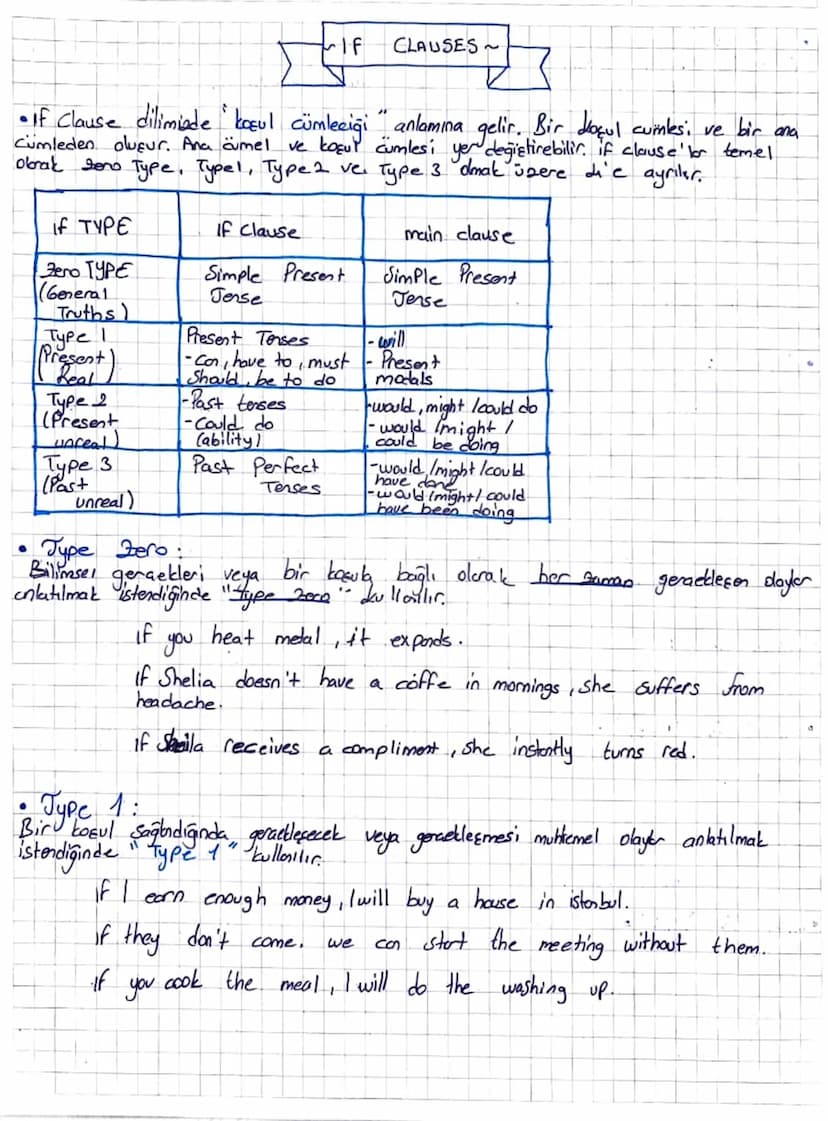 ~ IF CLAUSES ~
• If Clause dilimizde "koşul cümleciği" anlamına gelir. Bir koşul cümlesi ve bir ana
cümleden oluşur. Ana cümel ve koşul cümlesi yer değiştirebilir. if clause'lar temel
olarak zero Type, Type1, Type 2 ve Type 3 olmak üzere dü'e ayrılır.
if TYPE
If Clause
main clause
Zero TYPE
(General
Truths)
Simple Present
Tense
Simple Present
Tense
Type 1
(Present)
Real )
Present Tenses
- Can, have to, must
Should, be to do
- will
- Present
modals
Type 2
(Present
unreal)
- Past tenses
- Could do
(ability)
- would, might / could do
- would / might /
could be doing
Type 3
(Past
unreal)
Past Perfect
Tenses
- would / might / could
have done
- would / might / could
have been doing
• Type Zero:
Bilimsel gerçekleri veya bir koşula bağlı olarak her zaman gerçekleşen olaylar
anlatılmak istendiğinde "type zero" kullanılır.
if you heat metal, it expands.
if Shelia doesn't have a coffe in mornings, she suffers from
headache.
if Sheila receives a compliment, she instantly turns red.
• Type 1:
Bir koşul sağlandığında gerçekleşecek veya gerçekleşmesi muhtemel olaylar anlatılmak
istendiğinde "Type 1" kullanılır.
if I earn enough money, I will buy a house in istanbul.
if they don't come, we can start the meeting without them.
if you cook the meal, I will do the washing up.